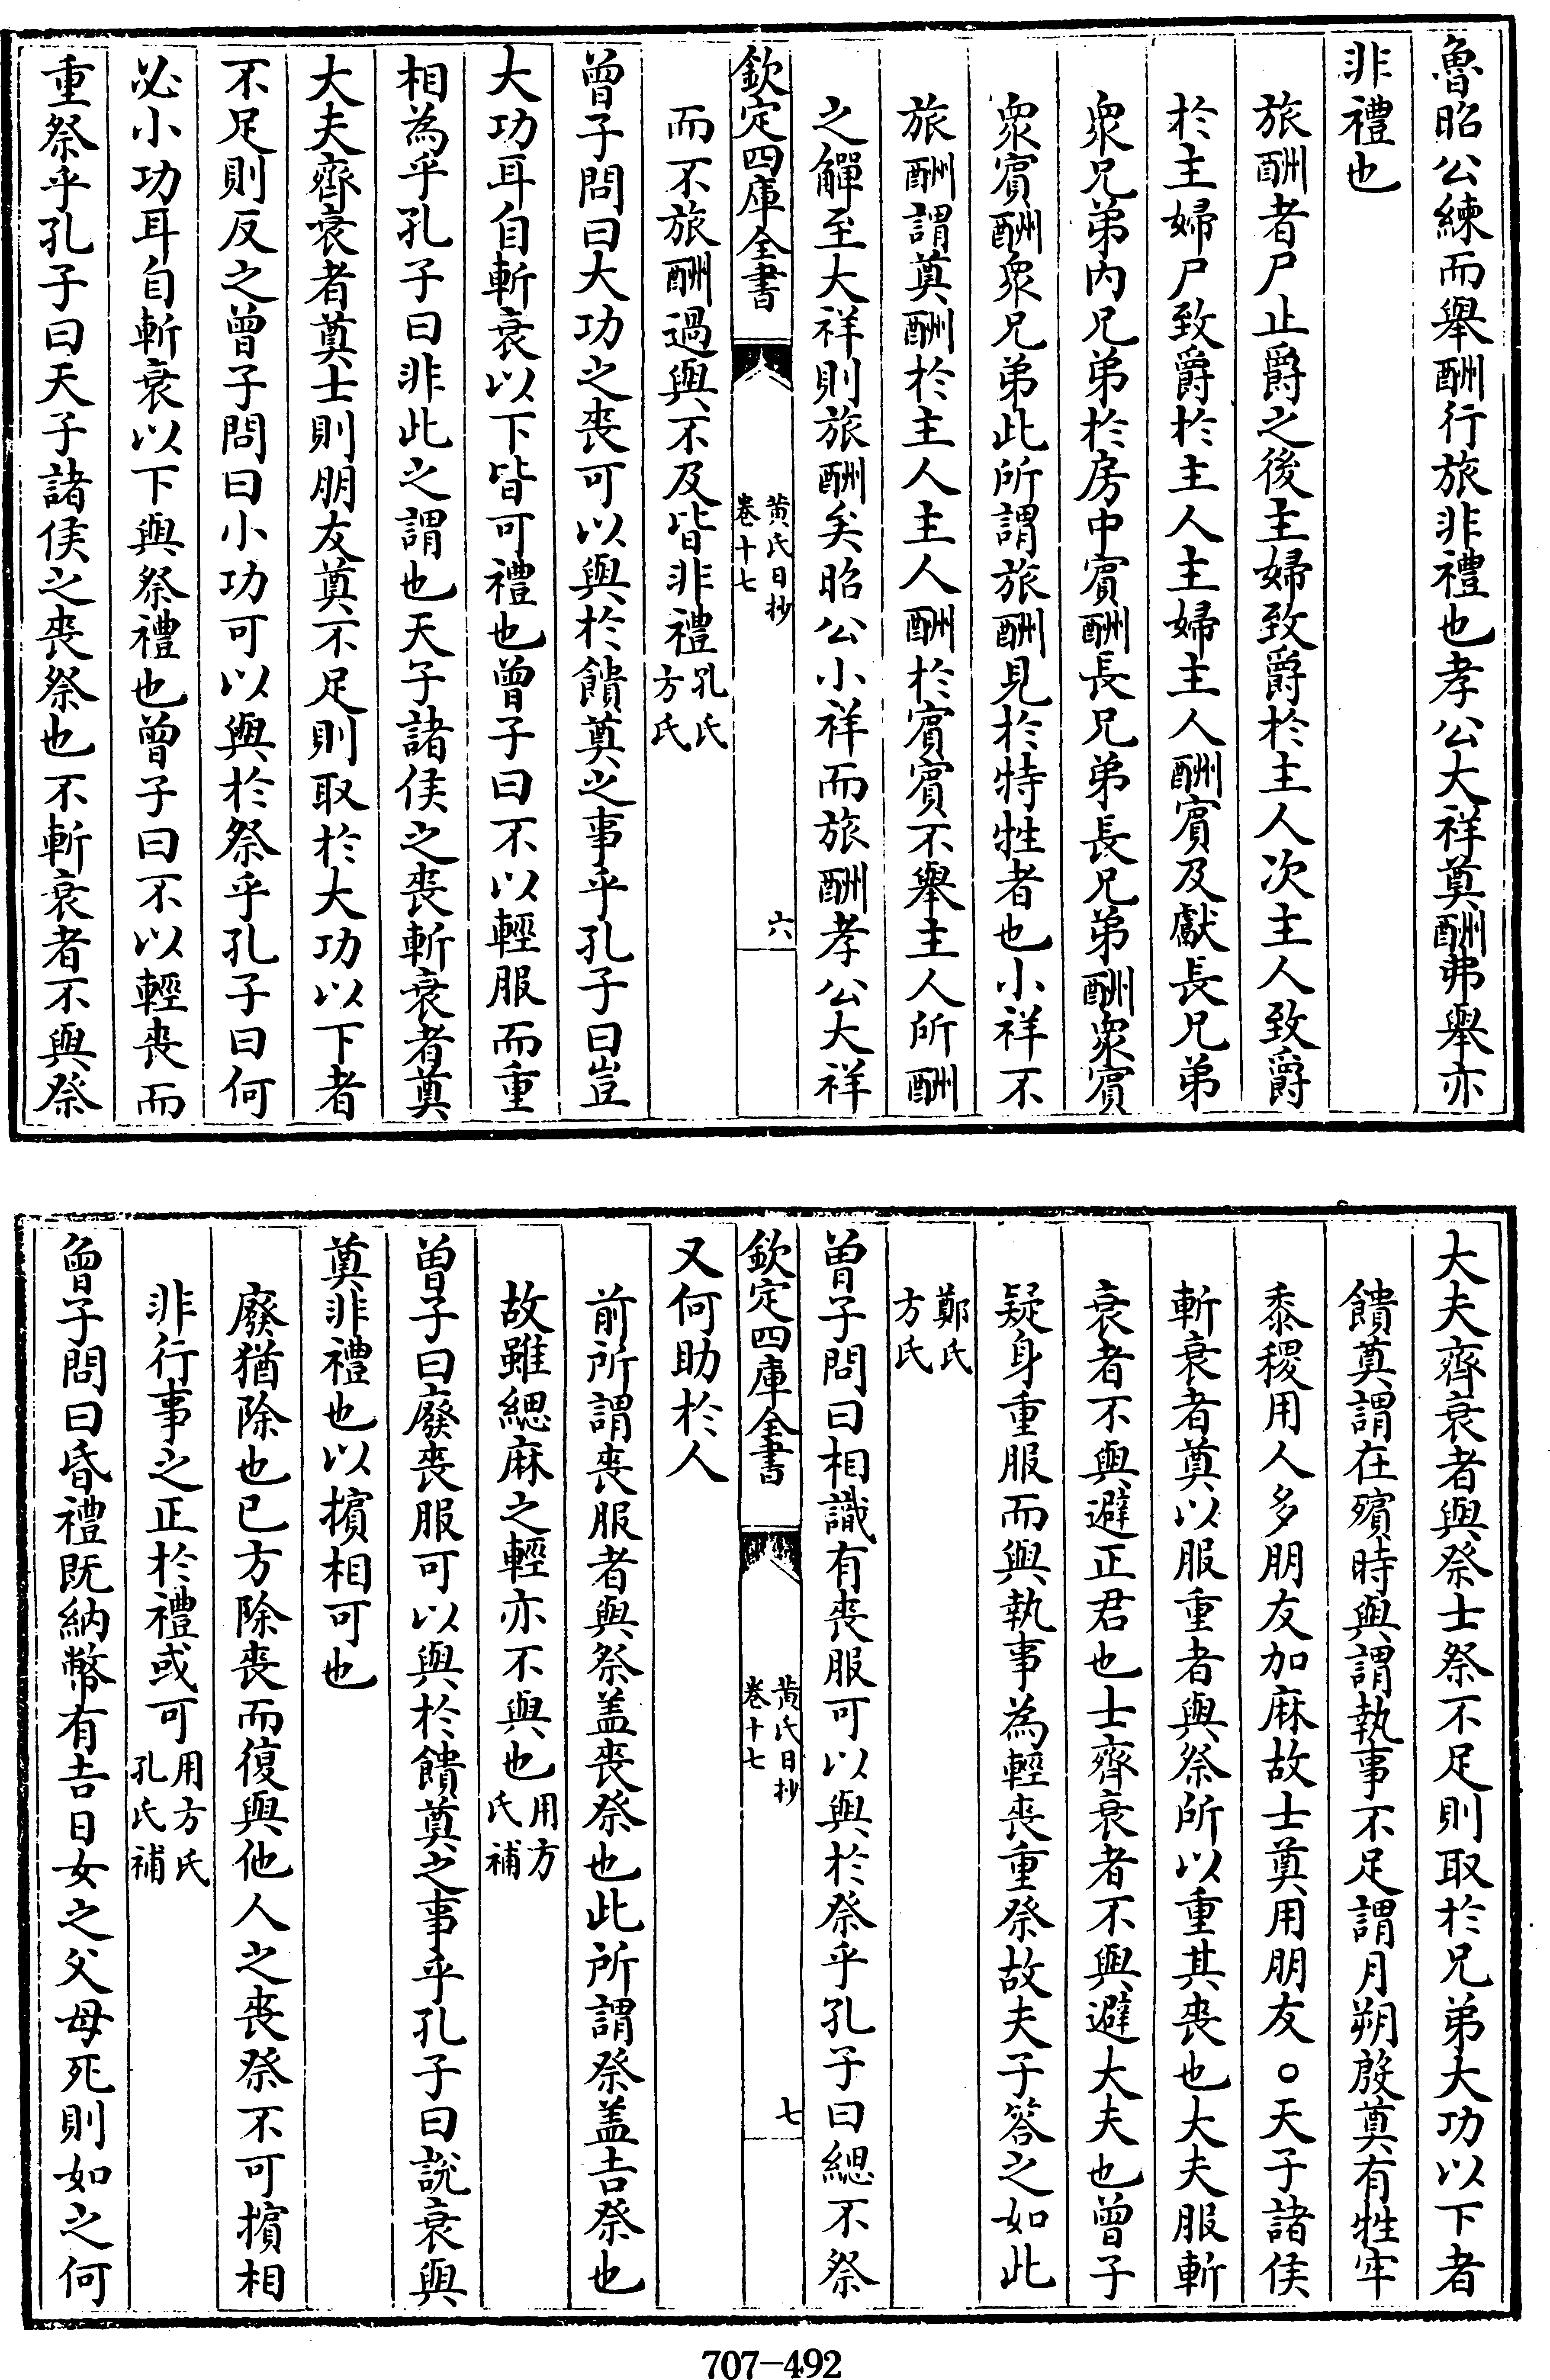 魯昭公練而舉酬行旅非禮也孝公大祥奠酬弗舉亦
非禮也
旅酬者尸止爵之後主婦致爵於主人次主人致爵
於主婦尸致爵於主人主婦主人酬賔及獻長兄弟
衆兄弟内兄弟於房中賔酬長兄弟長兄弟酬衆賔
衆賔酬衆兄弟此所謂旅酬見於特牲者也小祥不
旅酬謂奠酬於主人主人酬於賔賔不舉主人所酬
之觶至大祥則旅酬矣昭公小祥而旅酬孝公大祥
欽定四庫全書
黄氏日抄
卷十七
六
而不旅酬過與不及皆非禮孔氏
方氏
曽子問曰大功之喪可以與於饋奠之事乎孔子曰豈
大功耳自斬衰以下皆可禮也曽子曰不以輕服而重
相為乎孔子曰非此之謂也天子諸侯之喪斬衰者奠
大夫齊衰者奠士則朋友奠不足則取於大功以下者
不足則反之曽子問曰小功可以與於祭乎孔子曰何
必小功耳自斬衰以下與祭禮也曽子曰不以輕喪而
重祭乎孔子曰天子諸侯之喪祭也不斬衰者不與祭
大夫齊衰者與祭士祭不足則取於兄弟大功以下者
饋奠謂在殯時與謂執事不足謂月朔殷奠有牲牢
黍稷用人多朋友加麻故士奠用朋友○天子諸侯
斬衰者奠以服重者與祭所以重其喪也大夫服斬
衰者不與避正君也士齊衰者不與避大夫也曽子
疑身重服而與執事為輕喪重祭故夫子答之如此
鄭氏
方氏
曽子問曰相識有喪服可以與於祭乎孔子曰緦不祭
欽定四庫全書
黄氏日抄
卷十七
七
又何助於人
前所謂喪服者與祭盖喪祭也此所謂祭盖吉祭也
故雖緦麻之輕亦不與也用方
氏補
曽子曰廢喪服可以與於饋奠之事乎孔子曰說衰與
奠非禮也以擯相可也
廢猶除也已方除喪而復與他人之喪祭不可擯相
非行事之正於禮或可用方氏
孔氏補
曽子問曰昏禮既納幣有吉日女之父母死則如之何
707-492